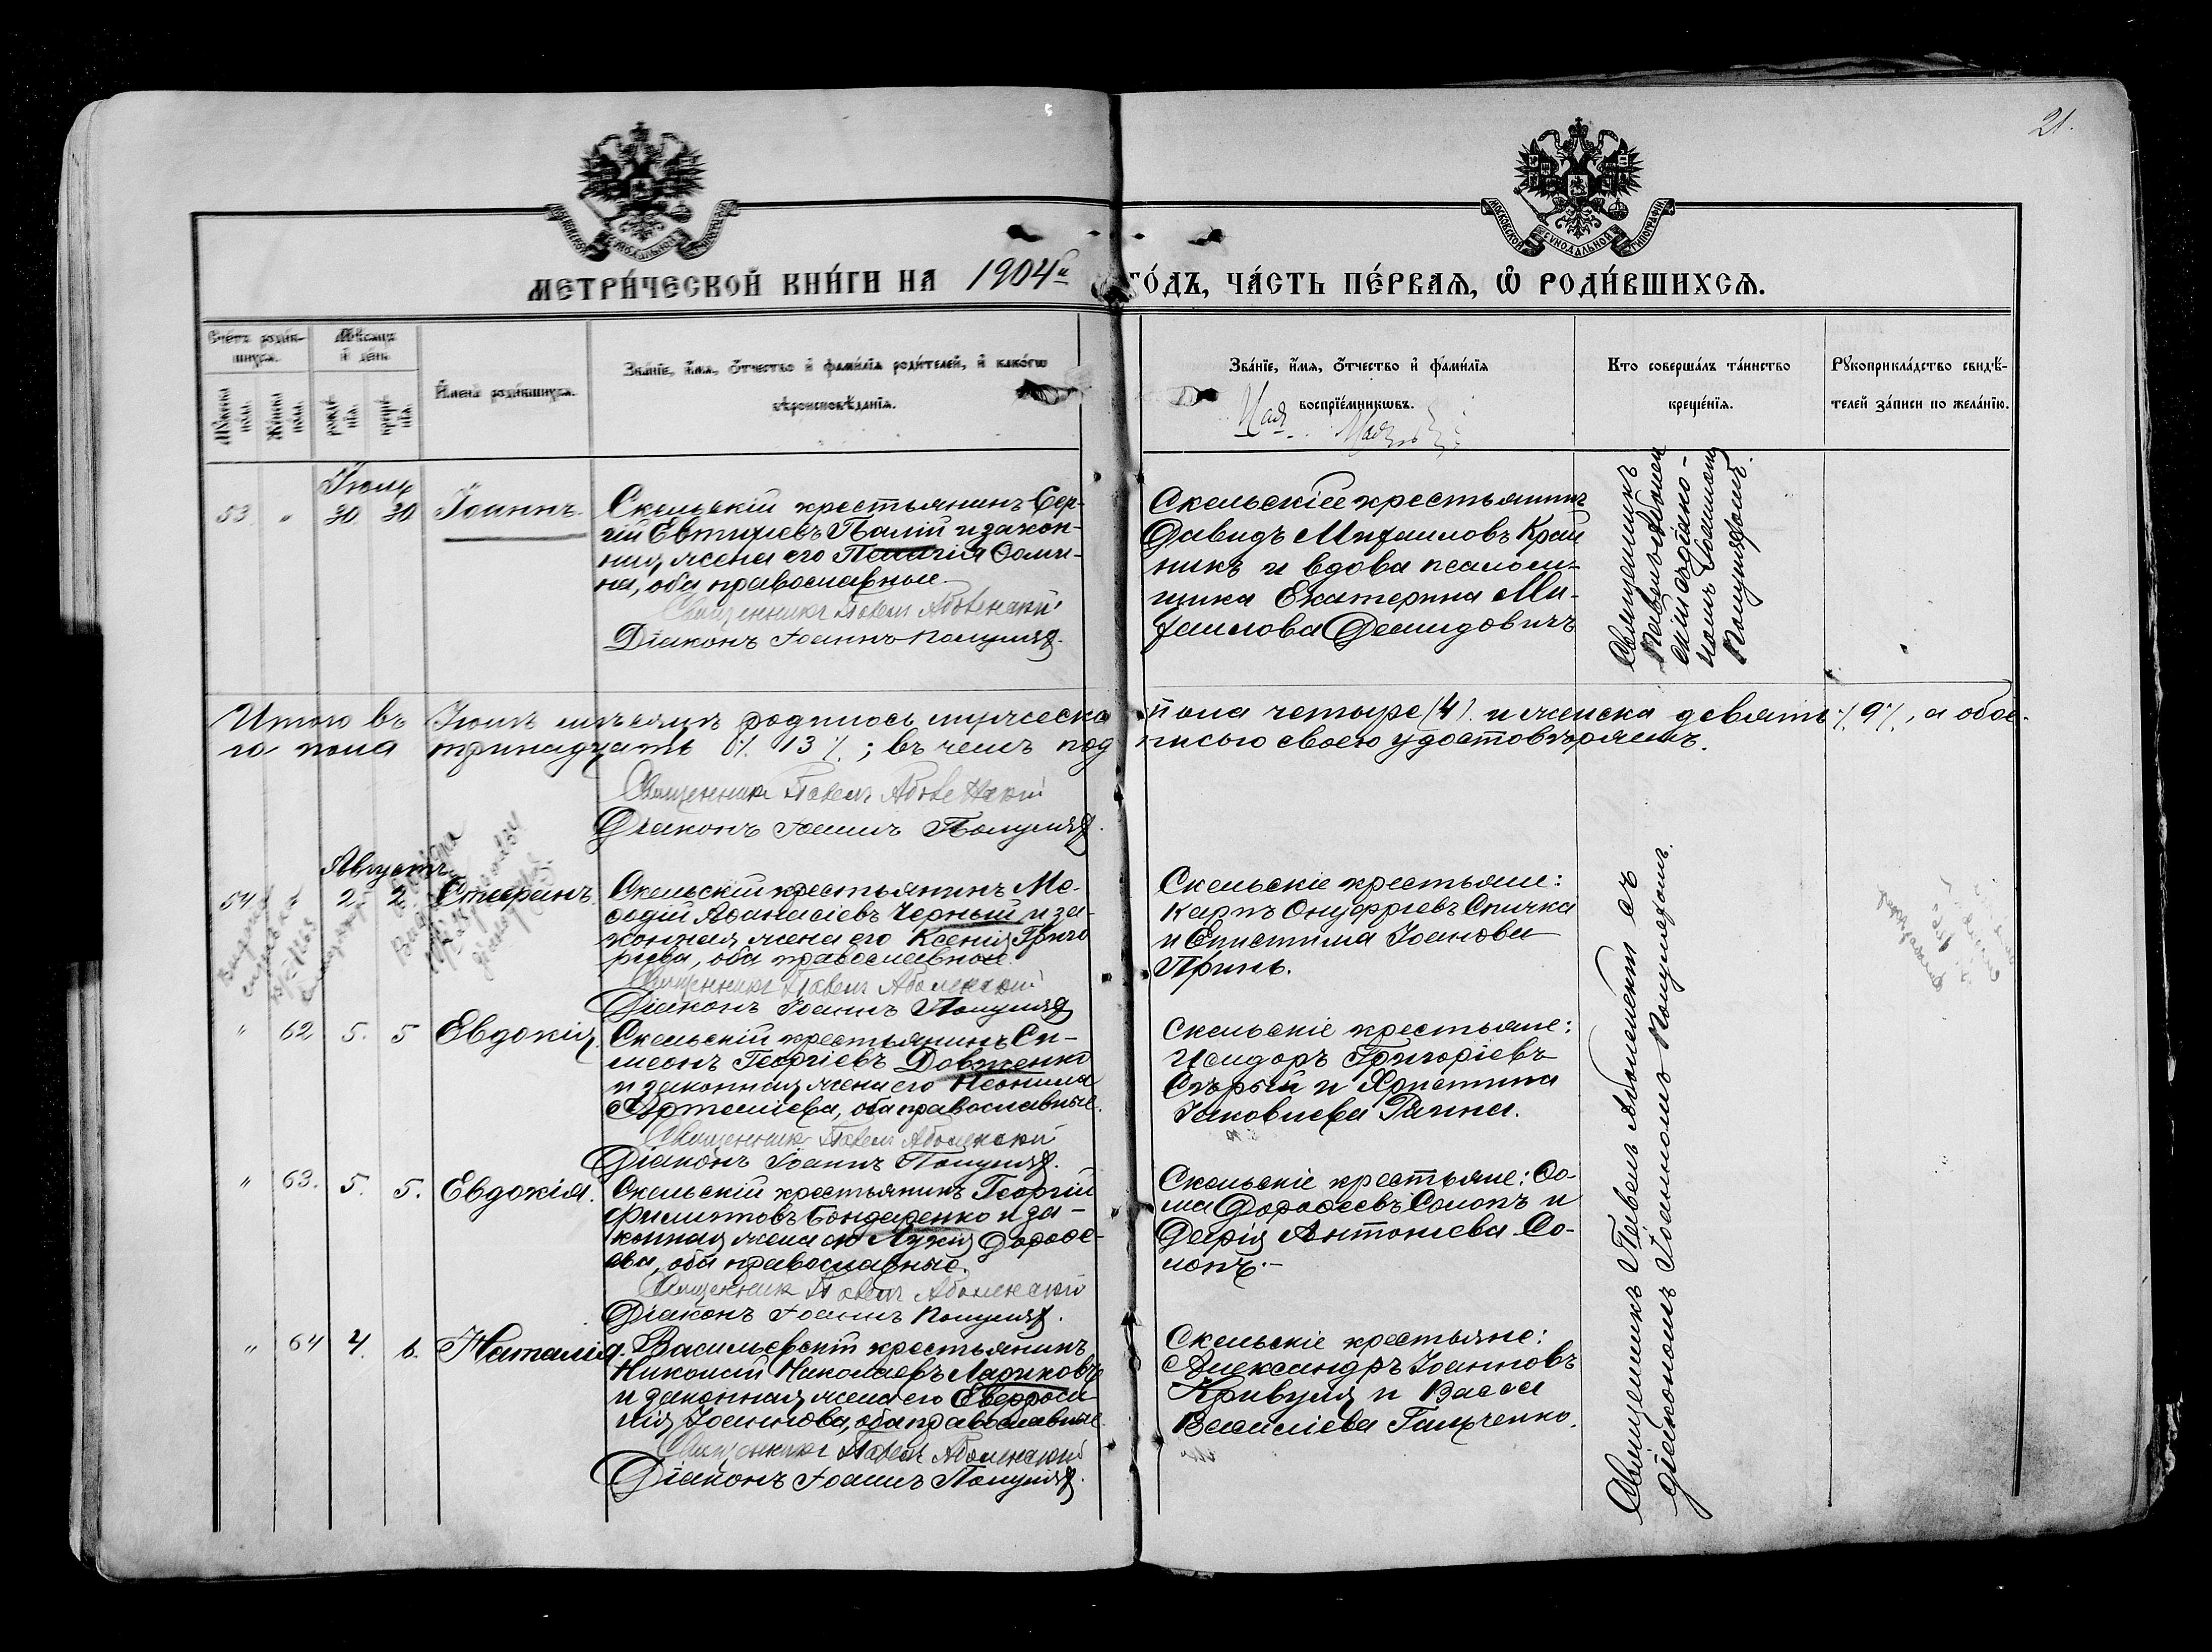 21.
МЕТРИ́ЧЕСКОЙ КНИ́ГИ НА 1904й ГО́ДЪ, ЧА́СТЬ ПЕ́РВАЯ, Ѽ РОДИ́ВШИХСЯ.
Сче́тъ роди́в-
шихся.
Мѣ́сяцъ
и҆ де́нь
И҆мена̀ роди́вшихся.
Зва́нїе, и҆́мя, ѻ҆́тчество и҆ фами́лїя роди́телей, и҆ како́гѡ
вѣроисповѣ́данїя.
Зва́нїе, и҆́мя, ѻ҆́тчество и҆ фами́лїя
воспрїе́мникѡвъ.
Кто̀ соверша́лъ та́инство
креще́нїя.
Рꙋкоприкла́дство свидѣ́-
телей за́писи по жела́нїю.
Іюль
53 " 30 30 Іоаннъ.
Скельскій крестьянинъ Сер-
гій Евтихіевъ Палій и закон-
ная жена его Пелагія Ѳоми-
на, оба православные.
Священникъ Павелъ
Діаконъ Іоаннъ Полуляхъ.
Скельскіе крестьянинъ
Давидъ Михаиловъ Край
никъ и вдова псалом-
щика Екатерина Ми-
хаилова Демидовичъ
Священникъ
Павелъ
скій съ діако-
номъ Іоанномъ
Полуляхомъ.
Итого въ Іюлѣ мѣсяцѣ родилось мужеска пола четыре (4) и женска девять % 9 %, а обое-
го пола тринадцать % 13 %; въ чемъ подписью своею удостовѣряемъ.
Священникъ Павелъ
Діаконъ Іоаннъ Полуляхъ.
Августъ
54 " 2. 2. Стефанъ.
Скельскій крестьянинъ Ме-
ѳодій Аѳанасіевъ Черный и за-
конная жена его Ксенія Григо
рьева, оба православные
Священникъ Павелъ
Діаконъ Іоаннъ Полуляхъ
Скельскіе крестьяне:
Карпъ Онуфріевъ Спичка
и Епистима Іоанова
Принь.
" 62 5. 5 Евдокія.
Скельскій крестьянинъ Си-
меонъ Георгіевъ Довженко
и законная жена его Неонила
Артеміева, оба православные.
Священникъ Павелъ
Діаконъ Іоаннъ Полуляхъ.
Скельскіе крестьяне:
Исидоръ Григоріевъ
Сѣрый и Христина
Іаковлева
" 63. 5. 5. Евдокія.
Скельскій крестьянинъ Георгій
Филиповъ Бондаренко и за-
конная жена его Лукія Дороѳе-
ева, оба православные.
Священникъ Павелъ
Діаконъ Іоаннъ Полуляхъ.
Скельскіе крестьяне: Ѳо-
ма Дороѳеевъ Солопъ и
Дарія Антоніева Со-
лопъ.-
" 64 4. 6. Наталія.
Васильевскій крестьянинъ
Николай Николаевъ Лариковъ
и законная жена его Евфроси-
нія Іоаннова, оба православные
Священникъ Павелъ
Діаконъ Іоаннъ Полуляхъ.
Скельскіе крестьяне:
Александръ Іоанновъ
Кривуля и Васса
Василіева Гальченко.
Священникъ Павелъ съ
діакономъ Іоанномъ Полуляхомъ.